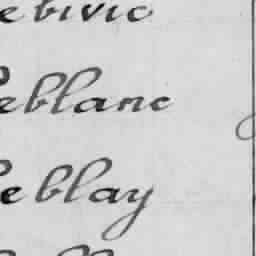 ebivic
eblanc
eblay